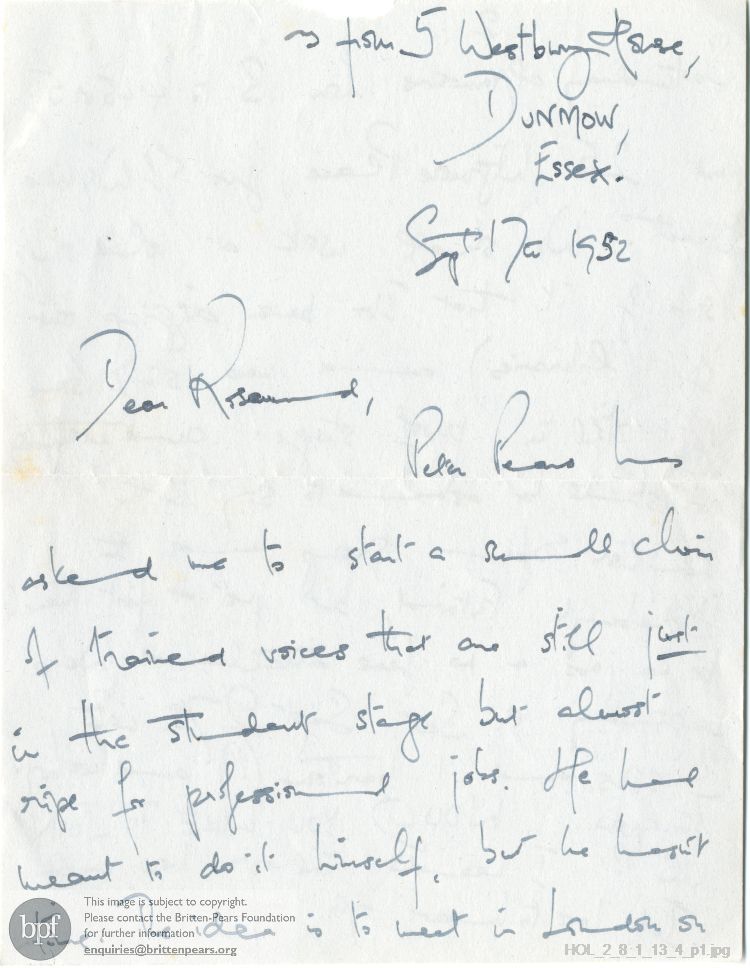 from 5 Westbury House,
DUNMOW,
Essex.
Sept 17th 1952
Dear Rosamund,
Peter Pears has
asked me to start a small choir
of trained voices that are still just
in the student stage but almost
ripe for professional jobs. He had
meant to do it himself, but he hasn't
time. The idea is to meet in London on
bpf
This image is subject to copyright.
Please contact the Britten-Pears Foundation
for further information
enquiries@brittenpears.org
HOL_2_8_1_13_4_p1.jpg